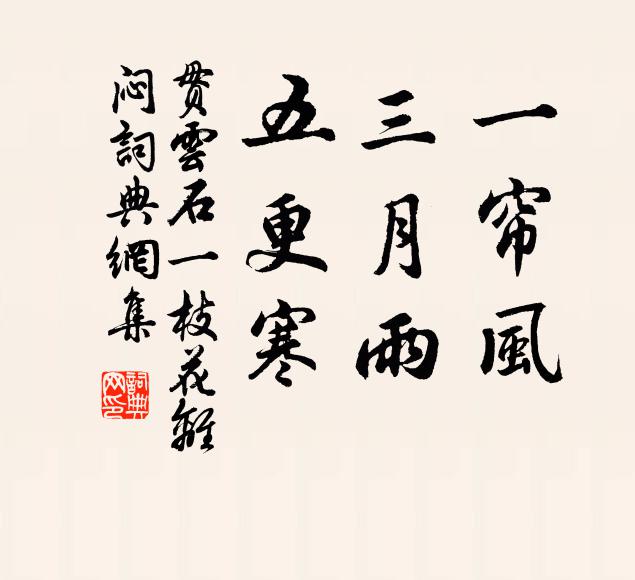 一帘風
三月雨
五更寒
貫雲石一枝花離
悶詞典網集
詞典
网印